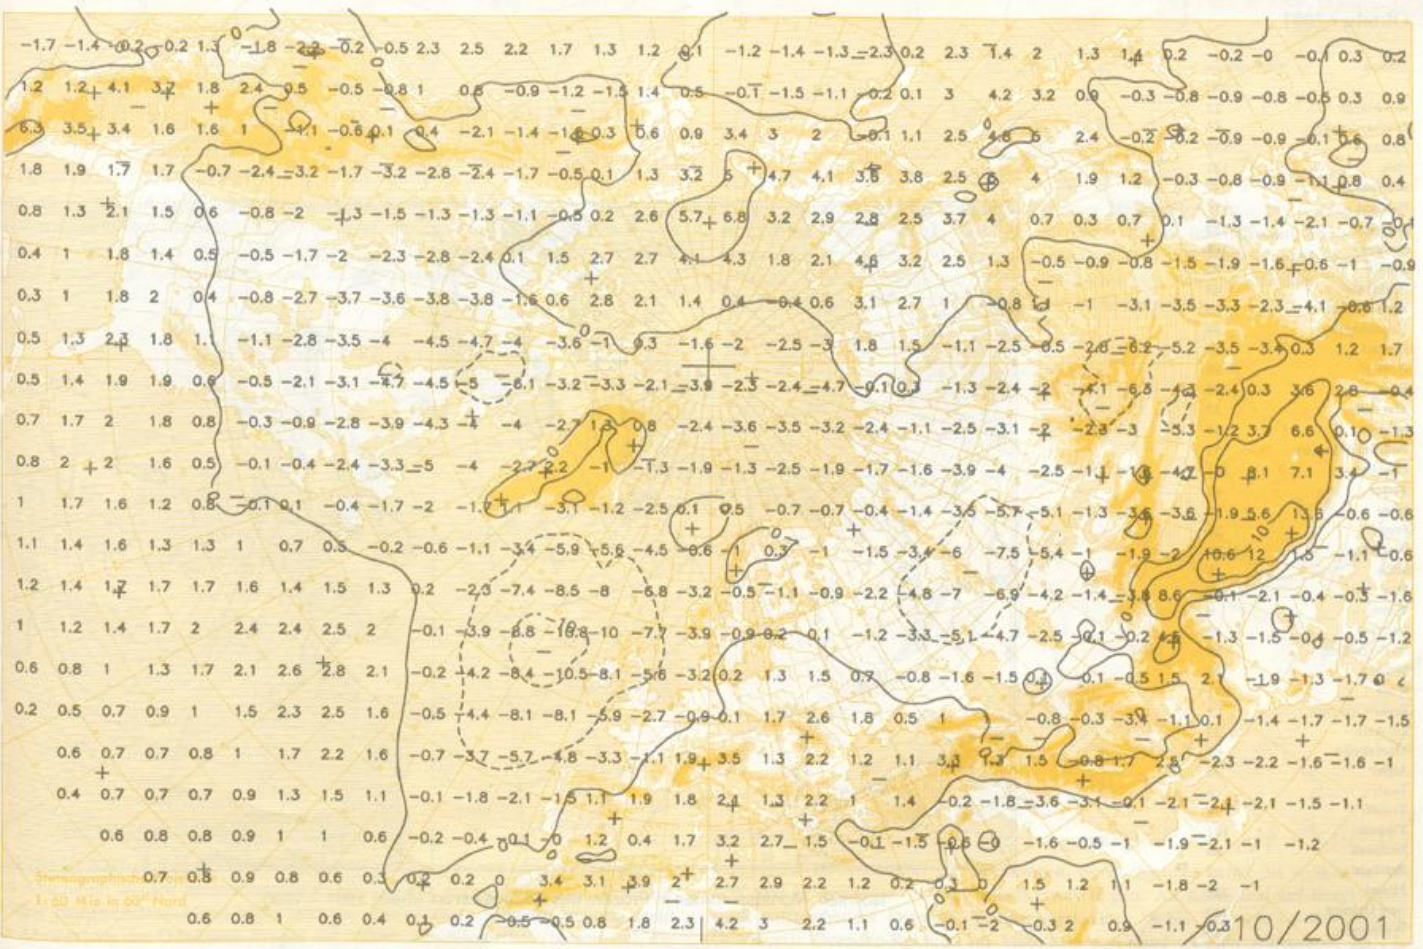 -1.7 -1.4 -0.2 -0.2 1.3 -1.8 -2.2 -0.2 -0.5 2.3 2.5 2.2 1.7 1.3 1.2 0.1 -1.2 -1.4 -1.3 -2.3 0.2 2.3 1.4 2 1.3 1.4 0.2 -0.2 -0 -0.1 0.3 0.2
1.2 1.2 4.1 3.7 1.8 2.4 0.5 -0.5 -0.8 1 0.8 -0.9 -1.2 -1.5 1.4 0.5 -0.1 -1.5 -1.1 -0.2 0.1 3 4.2 3.2 0.9 -0.3 -0.8 -0.9 -0.8 -0.5 0.3 0.9
6.3 3.5 3.4 1.6 1.6 1 -1.1 -0.6 0.1 0.4 -2.1 -1.4 0.3 0.6 0.9 3.4 3 2 -0.1 1.1 2.5 4.8 5 2.4 -0.2 -0.2 -0.9 -0.9 -0.1 0.6 0.8
1.8 1.9 1.7 1.7 -0.7 -2.4 -3.2 -1.7 -3.2 -2.8 -2.4 -1.7 -0.5 0.1 1.3 3.2 5 4.7 4.1 3.6 3.8 2.5 4 1.9 1.2 -0.3 -0.8 -0.9 -1.1 0.8 0.4
0.8 1.3 2.1 1.5 0.6 -0.8 -2 -1.3 -1.5 -1.3 -1.3 -1.1 -0.5 0.2 2.6 5.7 6.8 3.2 2.9 2.8 2.5 3.7 4 0.7 0.3 0.7 0.1 -1.3 -1.4 -2.1 -0.7
0.4 1 1.8 1.4 0.5 -0.5 -1.7 -2 -2.3 -2.8 -2.4 0.1 1.5 2.7 2.7 4.1 4.3 1.8 2.1 4.6 3.2 2.5 1.3 -0.5 -0.9 -0.8 -1.5 -1.9 -1.6 -0.6 -1 -0.9
0.3 1 1.8 2 0.4 -0.8 -2.7 -3.7 -3.6 -3.8 -3.8 -1.6 0.6 2.8 2.1 1.4 0.4 -0.4 0.6 3.1 2.7 1 -0.8 -1 -3.1 -3.5 -3.3 -2.3 -4.1 -0.6 1.2
0.5 1.3 2.3 1.8 1.1 -1.1 -2.8 -3.5 -4 -4.5 -4.7 -4 -3.6 -1 0.3 -1.6 -2 -2.5 -3 1.8 1.5 -1.1 -2.5 -0.5 -2.8 -6.2 -5.2 -3.5 -3.4 0.3 1.2 1.7
0.5 1.4 1.9 1.9 0.6 -0.5 -2.1 -3.1 -4.7 -4.5 -5 -6.1 -3.2 -3.3 -2.1 -3.9 -2.3 -2.4 -4.7 -0.1 0.3 -1.3 -2.4 -2 -4.1 -6.5 -4.3 -2.4 0.3 3.6 2.8 -0.4
0.7 1.7 2 1.8 0.8 -0.3 -0.9 -2.8 -3.9 -4.3 -4 -4 -2.7 1.3 0.8 -2.4 -3.6 -3.5 -3.2 -2.4 -1.1 -2.5 -3.1 -2 -2.3 -3 -5.3 -1.2 3.7 6.6 0.1 -1.3
0.8 2 2 1.6 0.5 -0.1 -0.4 -2.4 -3.3 -5 -4 -2.7 2.2 -1 -1.3 -1.9 -1.3 -2.5 -1.9 -1.7 -1.6 -3.9 -4 -2.5 -1.1 -4.7 -0 8.1 7.1 3.4 -1
1 1.7 1.6 1.2 0.8 -0.1 0.1 -0.4 -1.7 -2 -1.7 -3.1 -1.2 -2.5 0.1 0.5 -0.7 -0.7 -0.4 -1.4 -3.5 -5.7 -5.1 -1.3 -3.6 -3.6 -1.9 5.6 -0.6 -0.6
1.1 1.4 1.6 1.3 1.3 1 0.7 0.5 -0.2 -0.6 -1.1 -3.4 -5.9 -5.6 -4.5 -0.6 -1 0.3 -1 -1.5 -3.4 -6 -7.5 -5.4 -1 -1.9 -2 10.6 12 1.5 -1.1 -0.6
1.2 1.4 1.7 1.7 1.7 1.6 1.4 1.5 1.3 0.2 -2.3 -7.4 -8.5 -8 -6.8 -3.2 -0.5 -1.1 -0.9 -2.2 -4.8 -7 -6.9 -4.2 -1.4 -3.8 8.6 -0.1 -2.1 -0.4 -0.3 -1.6
1 1.2 1.4 1.7 2 2.4 2.4 2.5 2 -0.1 -3.9 -8.8 -10.8 -10 -7.7 -3.9 -0.9 0.2 0.1 -1.2 -3.3 -5.1 -4.7 -2.5 -0.1 -0.2 4.5 -1.3 -1.5 -0.4 -0.5 -1.2
0.6 0.8 1 1.3 1.7 2.1 2.6 2.8 2.1 -0.2 -4.2 -8.4 -10.5 -8.1 -5.6 -3.2 0.2 1.3 1.5 0.7 -0.8 -1.6 -1.5 0.1 -0.1 -0.5 1.5 2.1 -1.9 -1.3 -1.7
0.2 0.5 0.7 0.9 1 1.5 2.3 2.5 1.6 -0.5 -4.4 -8.1 -8.1 -5.9 -2.7 -0.9 0.1 1.7 2.6 1.8 0.5 1 -0.8 -0.3 -3.4 -1.1 0.1 -1.4 -1.7 -1.7 -1.5
0.6 0.7 0.7 0.8 1 1.7 2.2 1.6 -0.7 -3.7 -5.7 -4.8 -3.3 -1.1 1.9 3.5 1.3 2.2 1.2 1.1 3.3 1.3 1.5 -0.8 1.7 2.5 -2.3 -2.2 -1.6 -1.6 -1
0.4 0.7 0.7 0.7 0.9 1.3 1.5 1.1 -0.1 -1.8 -2.1 -1.5 1.1 1.9 1.8 2.1 1.3 2.2 1 1.4 -0.2 -1.8 -3.6 -3.1 -0.1 -2.1 -2.1 -2.1 -1.5 -1.1
0.6 0.8 0.8 0.9 1 1 0.6 -0.2 -0.4 -0.1 -0 1.2 0.4 1.7 3.2 2.7 1.5 -0.1 -1.5 -0.6 -0 -1.6 -0.5 -1 -1.9 -2.1 -1 -1.2
0.7 0.8 0.9 0.8 0.6 0.3 0.2 0.2 0 3.4 3.1 3.9 2 2.7 2.9 2.2 1.2 0.2 0.3 0 1.5 1.2 1.1 -1.8 -2 -1
Stereographische Projektion
1:60 Mio in 60° Nord
0.6 0.8 1 0.6 0.4 0.1 0.2 -0.5 -0.5 0.8 1.8 2.3 4.2 3 2.2 1.1 0.6 -0.1 -2 -0.3 2 0.9 -1.1 -0.3
10/2001